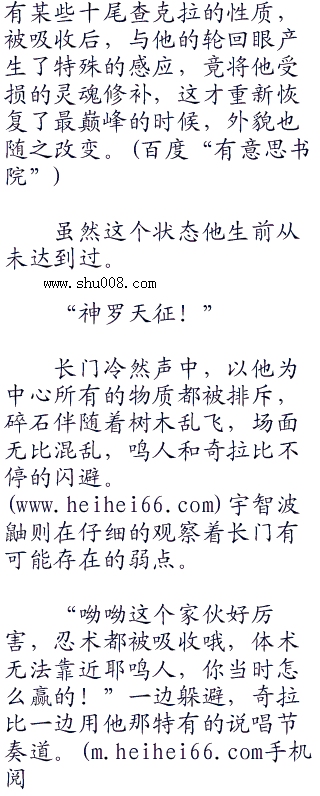 有某些十尾查克拉的性质，
被吸收后，与他的轮回眼产
生了特殊的感应，竟将他受
损的灵魂修补，这才重新恢
复了最巅峰的时候，外貌也
随之改变。(百度“有意思书
院”)
虽然这个状态他生前从
未达到过。
www.shu008.com
“神罗天征！”
长门冷然声中，以他为
中心所有的物质都被排斥，
碎石伴随着树木乱飞，场面
无比混乱，鸣人和奇拉比不
停的闪避。
(www.heihei66.com)宇智波
鼬则在仔细的观察着长门有
可能存在的弱点。
“呦呦这个家伙好厉
害，忍术都被吸收哦，体术
无法靠近耶鸣人，你当时怎
么赢的！”一边躲避，奇拉
比一边用他那特有的说唱节
奏道。(m.heihei66.com手机
阅